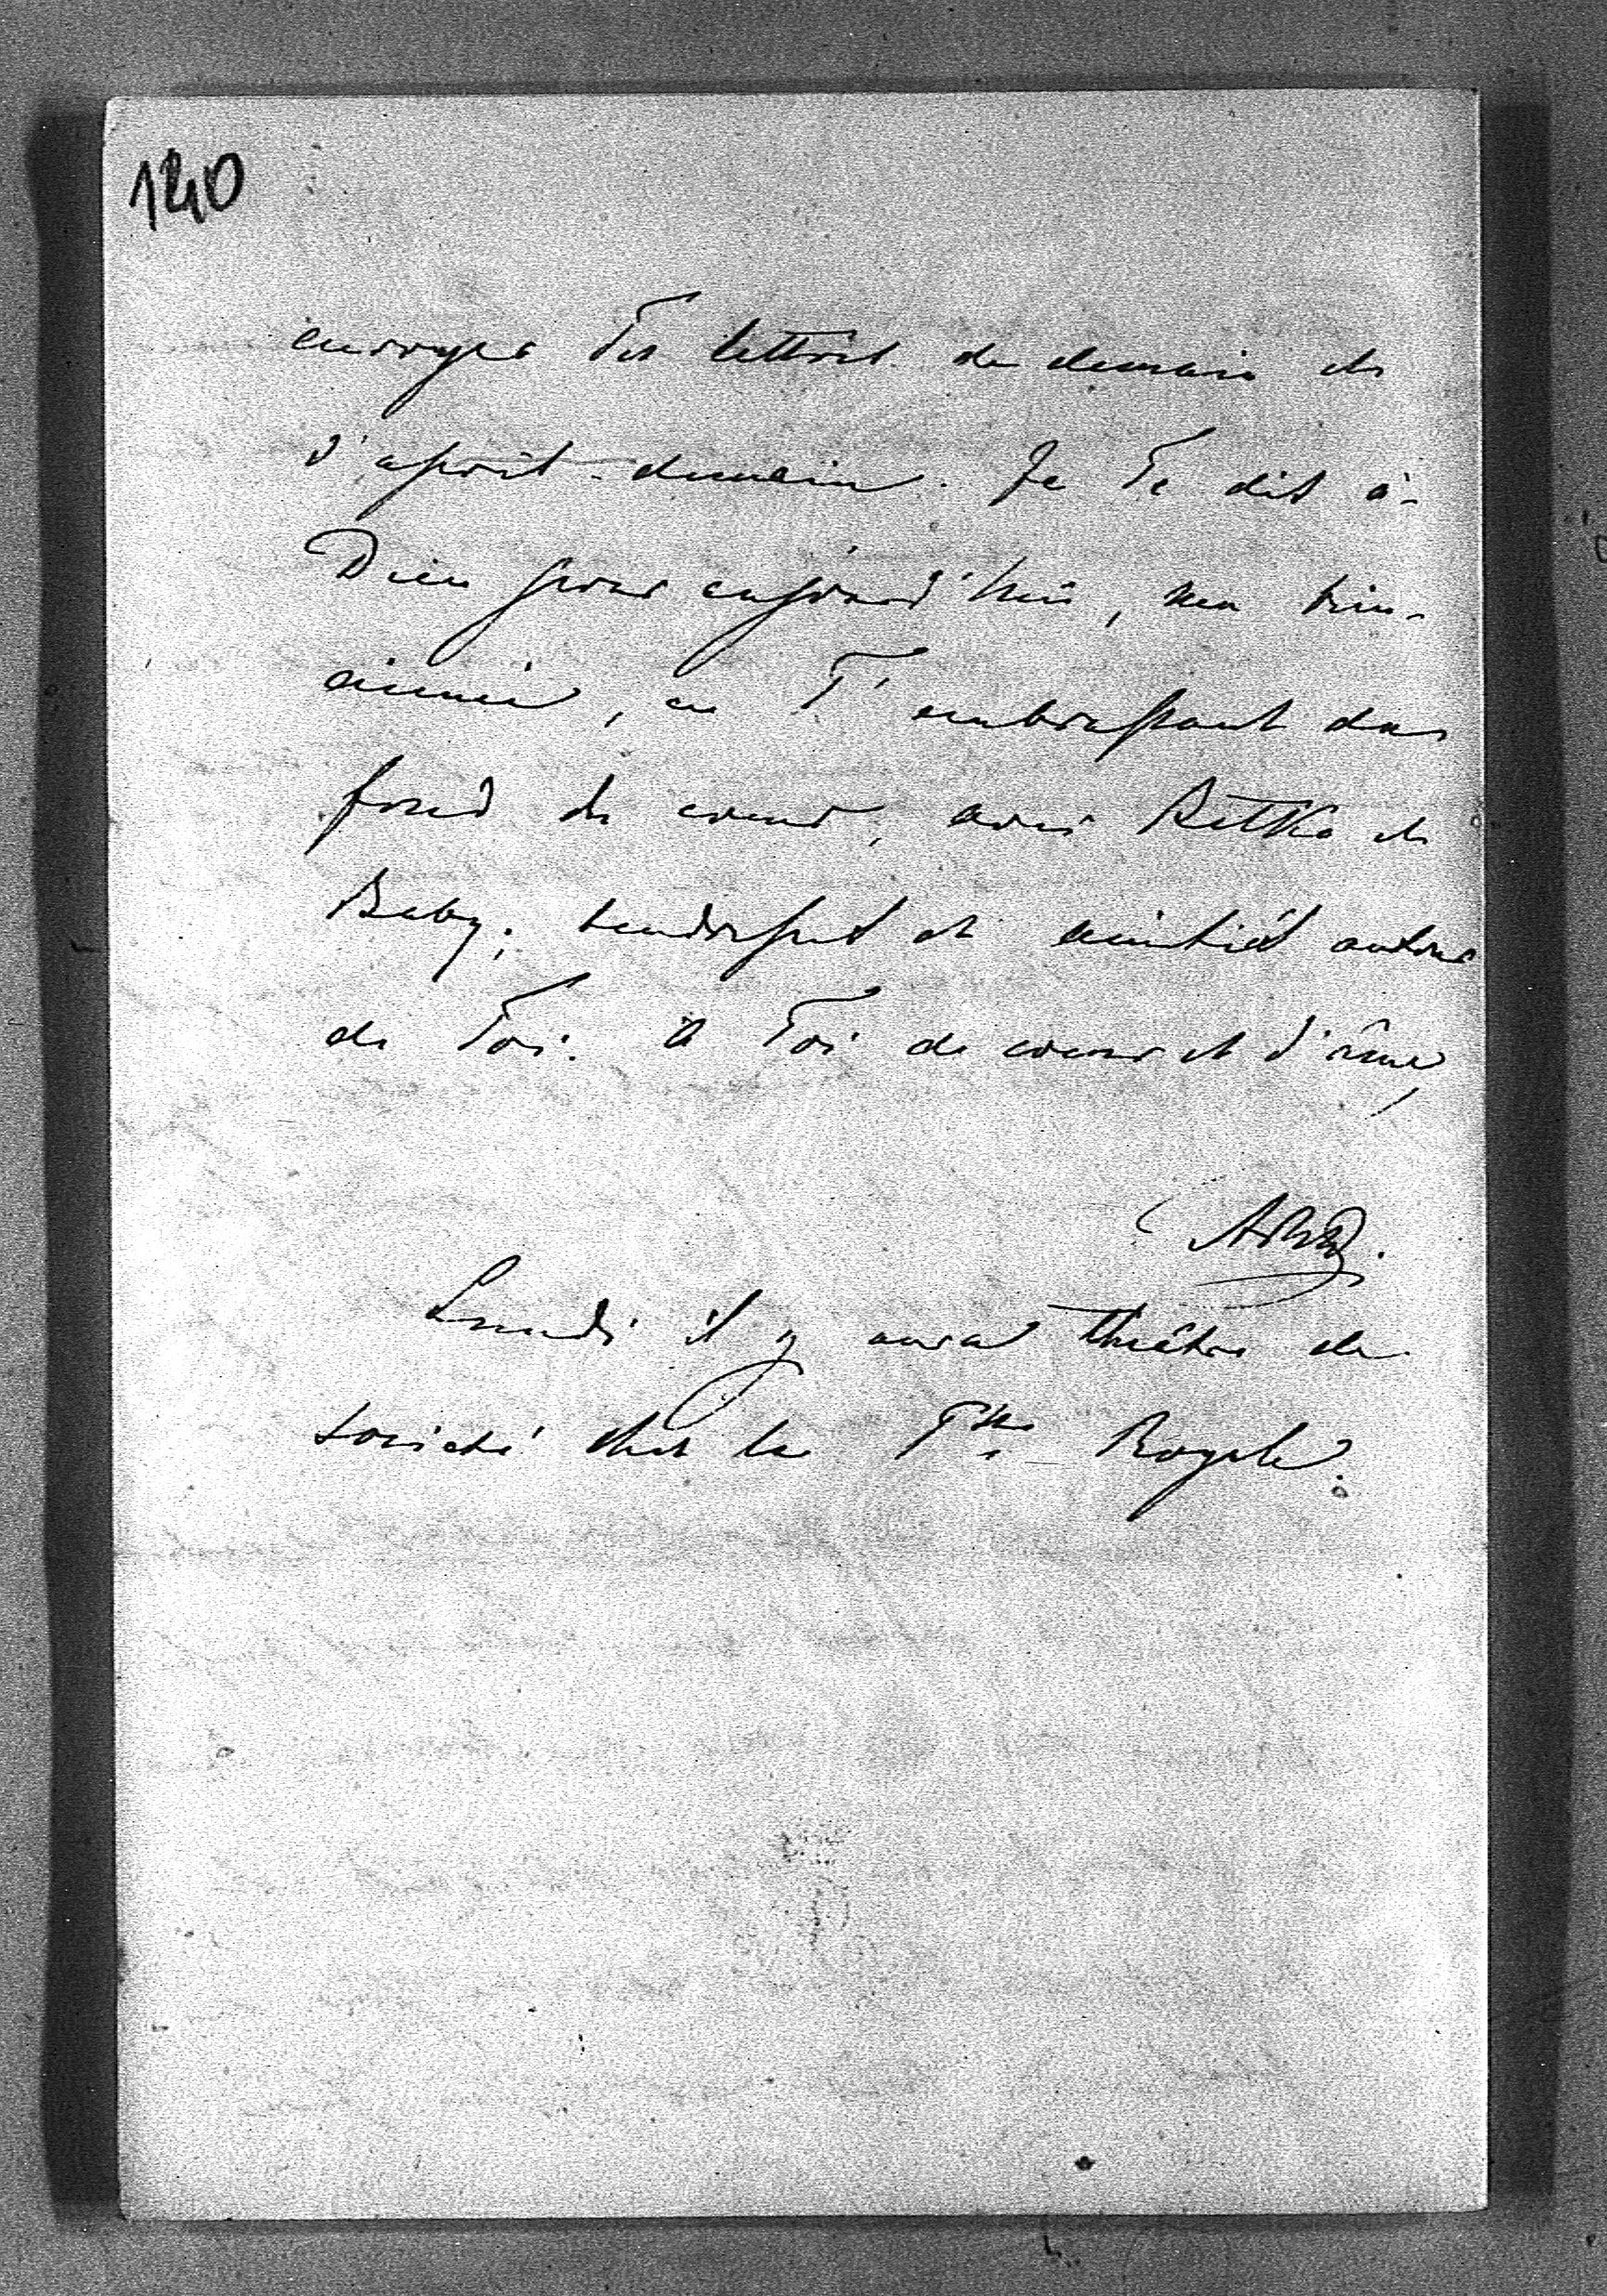 140
envoyer Tes lettres de demain et
d'après-demain. Je Te dis à-
Dieu pour aujourd'hui, ma bien-
aimée, en T'embrassant du
fond du coeur, avec Betka et
Baby; tendresses et amitiés autour
de Toi. A Toi de coeur et d'âme,
Lundi il y aura théâtre de
société chez la Psse Royale.